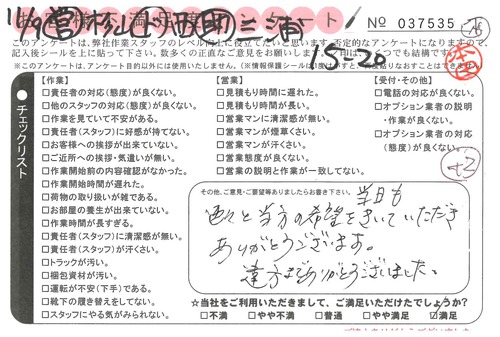 11/9 営 杉山 西田 三浦
No 037535
15-20
このアンケートは、弊社作業スタッフのレベル向上に役立てたいと思います。否定的なアンケートになりますので、
記入後シールを上に貼って下さい。数多くの正直なご意見をお聞かせ下さい。
※このアンケートは、アンケート目的以外には使用いたしません。
チェックリスト
【作業】
□責任者の対応(態度)が良くない。
□他のスタッフの対応(態度)が良くない。
□作業を見ていて不安がある。
□責任者(スタッフ)に好感が持てない。
□お客様への挨拶が出来ていない。
□ご近所への挨拶・気遣いが無い。
□作業開始前の内容確認がなかった。
□作業開始時間が遅れた。
□荷物の取り扱いが雑である。
□お部屋の養生が出来ていない。
□作業時間が長すぎる。
□責任者(スタッフ)に清潔感が無い。
□責任者(スタッフ)が汗くさい。
□トラックが汚い。
□梱包資材が汚い。
□運転が不安(下手)である。
□靴下の履き替えをしてない。
□スタッフにやる気がみられない。
【営業】
□見積もり時間に遅れた。
□見積もり時間が長い。
□営業マンに清潔感が無い。
□営業マンが煙草くさい。
□営業マンが汗くさい。
□営業態度が良くない。
□営業の説明と作業が一致してない。
【受付・その他】
□電話の対応が良くない。
□オプション業者の説明
・作業が良くない。
□オプション業者の対応
(態度)が良くない。
+2
その他、ご意見・ご要望等ありましたらお書き下さい。
当日も
色々と当方の希望をきいていただき
ありがとうございます。
遠方までありがとうございました。
☆当社をご利用いただきまして、ご満足いただけたでしょうか?
□不満 □やや不満 □普通 □やや満足 ☑満足